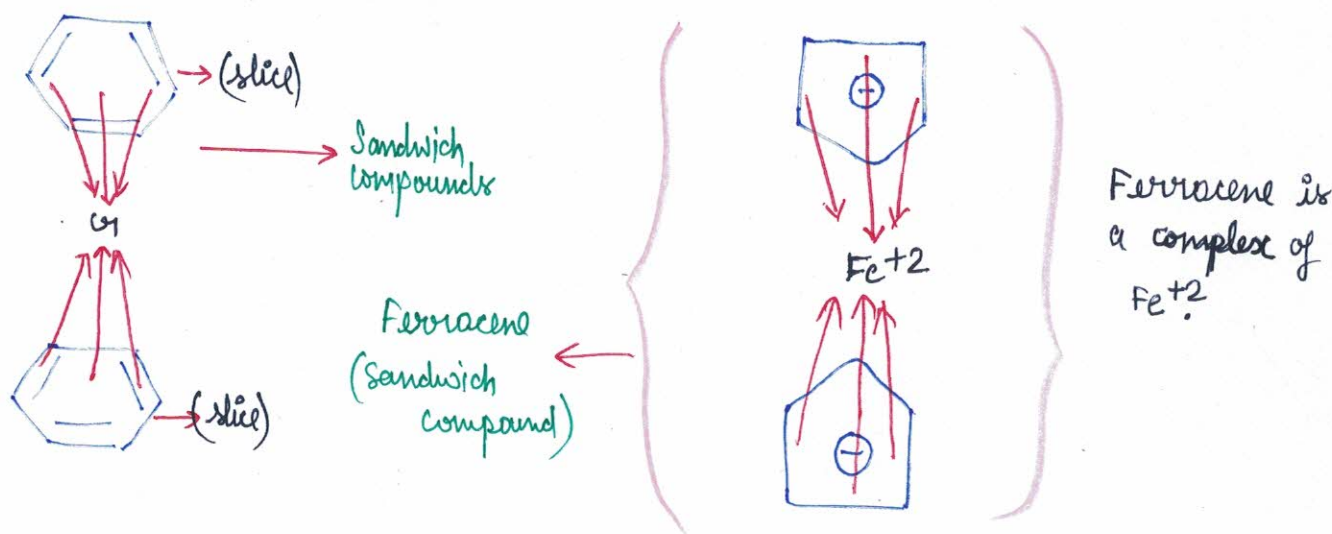 (slice)
Sandwich
compounds
Cr
(slice)
Ferracene
(Sandwich
compound)
Fe+2
Ferracene is
a complex of
Fe+2.